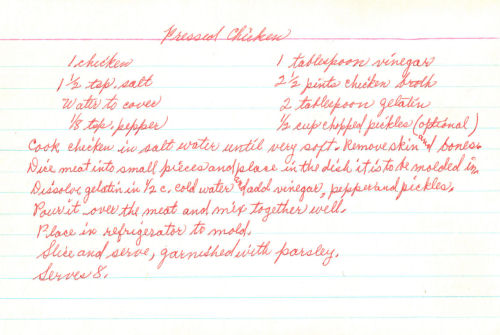 Pressed Chicken
1 chicken 1 tablespoon vinegar
1 1/2 tsp. salt 2 1/2 pints chicken broth
Water to cover 2 tablespoon gelatin
1/8 tsp. pepper 1/2 cup chopped pickles (optional)
Cook chicken in salt water until very soft. Remove skin and bones.
Dice meat into small pieces and place in the dish it is to be molded in.
Dissolve gelatin in 1/2 c. cold water and add vinegar, pepper and pickles.
Pour it over the meat and mix together well.
Place in refrigerator to mold.
Slice and serve, garnished with parsley.
Serves 8.